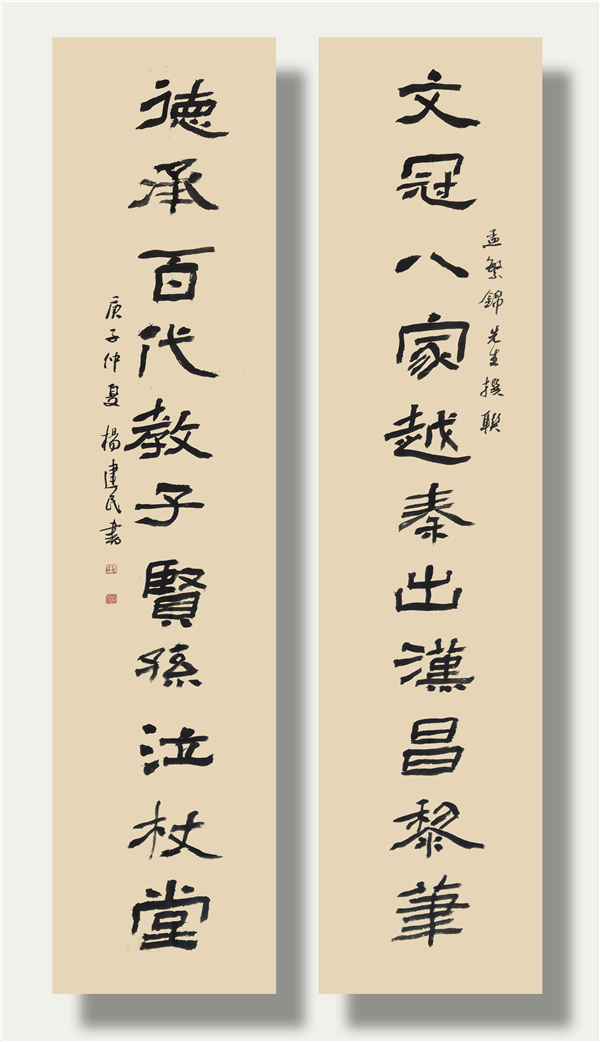 文冠八家越秦出漢昌黎筆
孟繁錦先生撰聯
德承百代教子賢孫泣杖堂
庚子仲夏 楊建民書